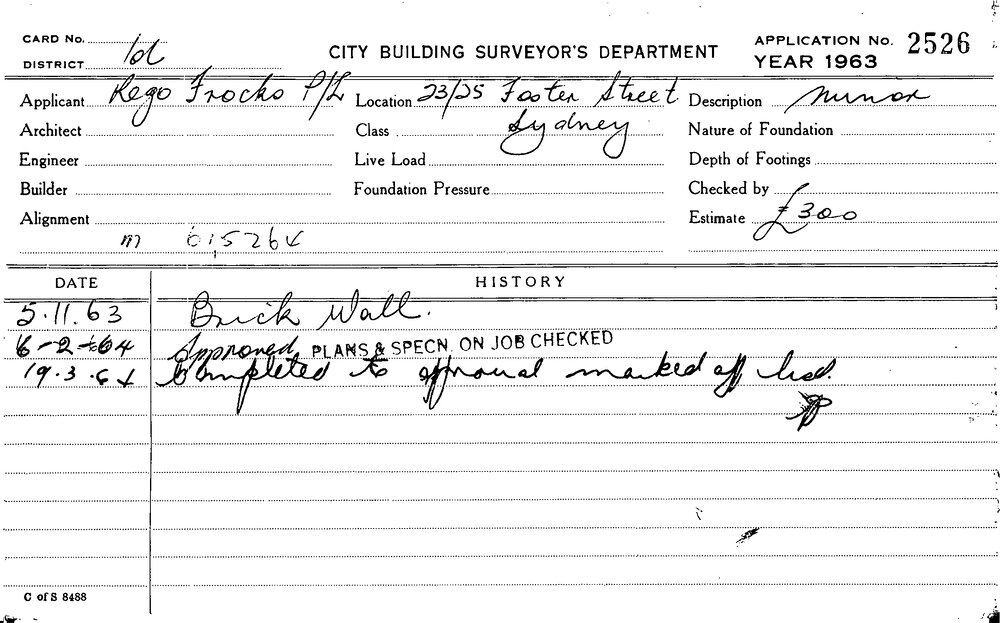 CARD No.
DISTRICT
CITY BUILDING SURVEYOR'S DEPARTMENT
APPLICATION No. 2526
YEAR 1963
Applicant Rego Frocks P/L
Location 23/25 Foster Street
Sydney
Description Minor
Architect
Class
Nature of Foundation
Engineer
Live Load
Depth of Footings
Builder
Foundation Pressure
Checked by
Alignment
Estimate £300
m 615264
DATE HISTORY
5.11.63 Brick Wall.
6-2-64 Approved PLANS & SPECN. ON JOB CHECKED
19.3.64 Completed to approval marked off
C of S 8488